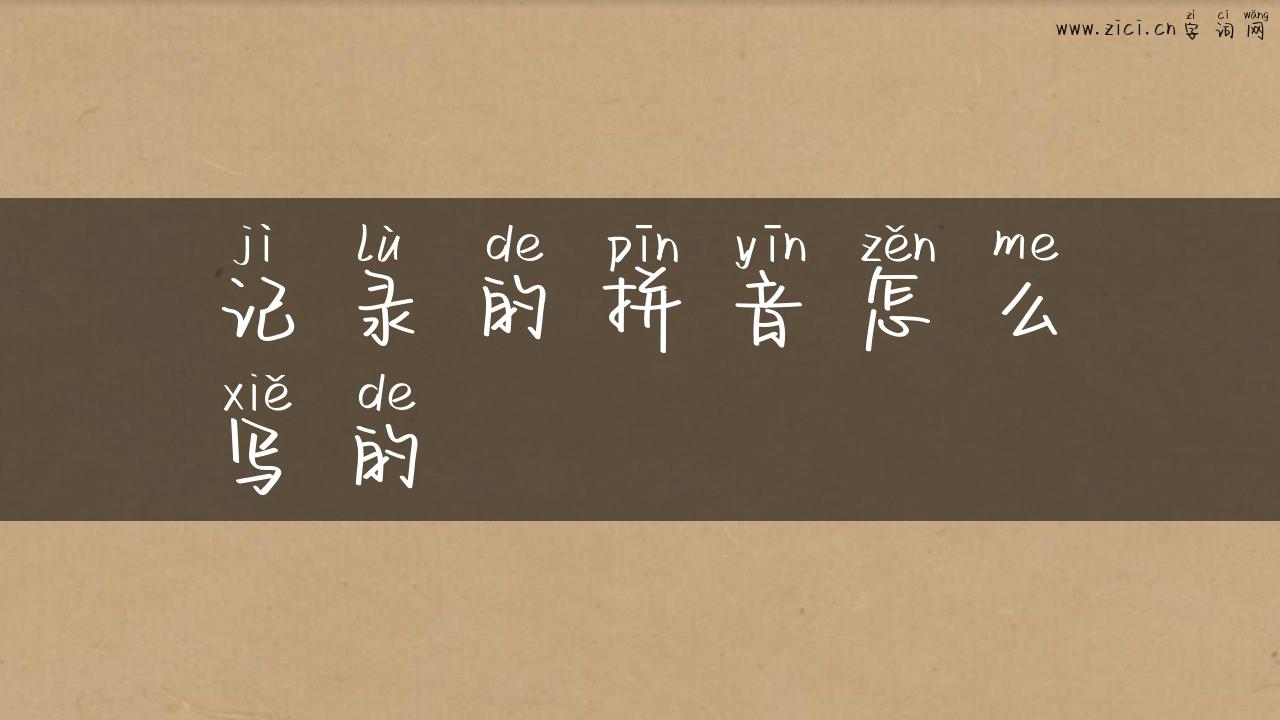 zì cí wǎng
www.zici.cn 字词网
jì lù de pīn yīn zěn me
记录的拼音怎么
xiě de
写的